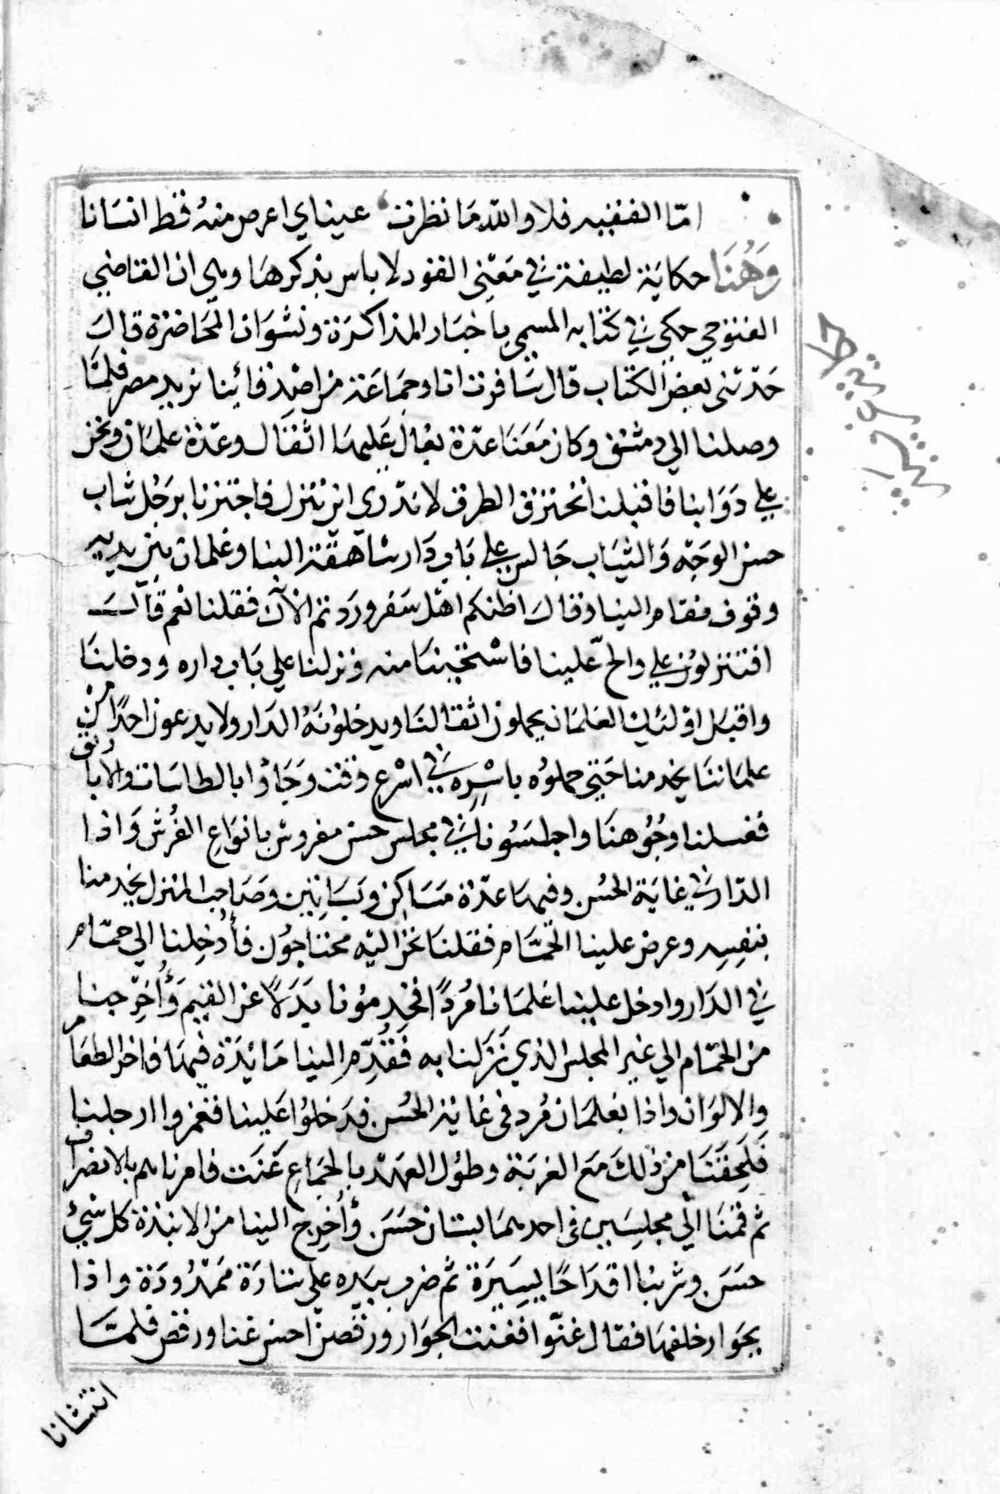 امّا الفقيه فلا والله ما نظرت عيناي اعرص منه قط انسانا
وَهُنَا حكاية لطيفة في مَعْنى القود لا باس بذكرها وهي ان القاضي
التنوخي حكى في كتابه المسمى باخبار المذاكرة ونشوان المحاضرة قال
حدّثني بعض الكتاب قال سافرت انا وجماعة من اصدقائنا نريد مصر فلمّا
وصلنا الي دمشق وكان مَعَنا عدّة بغال عليها اثقال وعدّة غلمان ونحن
علي دَوَابنا فاقبلنا نخترق الطرق لا ندرى اين ننزل فاجتزنا برَجُل شاب
حسن الوجه وَالثياب جَالس علي باب دَار شاهقة البنا وغلمان بين يديه
وقوف فقام الينا وقال اظنكم اهل سَفر وردتم الآن فقلنا نعم قال
افتنزلون علي والحّ علينا فاسْتَحْيَيْنَا منه ونزلنا علي بَاب داره ودخلنا
واقبل اولئك الغلمان يحملون اثقالنا ويدخلونهُ الدار ولا يدعون احدًا من
غلماننا يخدمنا حَتي حملوُه باسْرِه في اسْرع وقت وَجَاؤا بالطاسات والاباريق
فغسلنا وجُوُهنَا واجلسُونا في مجلس حسن مفروش بانوَاع الفُرش وَاذا
الدّار في غاية الحُسن وفيها عدّة مَسَاكن وبَسَاتين وصَاحب المنزل يخدمنا
بنفسِه وعرض علينا الحمّام فقلنا نحن اليْه محتاجُون فأُدْخِلنا الي حمّام
في الدار وادخل علينا غلمَانا مُردًا فخدمُونا بَدَلاً عن القيم وَأُخرِجنا
من الحمّام الي غير المجلس الذي نَزَلنا به فَقُدِّم الينا مَائدَة فيها فاخر الطعَام
والالوَان واذا بغلمَان مُرد في غاية الحُسن قد دَخلوُا عَلينا فغمزوا ارجلنا
فَلَحِقَنَا من ذلك مَع الغربَة وطوُل العهْد بالجماع عَنَت فامرناهم بالانصراف
ثم قمْنَا الي مجلسَين في احدهما بستان حَسَن وَأُخرج الينا من الانبذة كل شيء
حسَن وشربنا اقدَاحًا يسِيرَة ثم ضرب بيَده علي ستارَة ممدُودَة واذا
بجوَار خلفها فقال غنّوا فغنت الجوَار ورقَصن احسن غنا ورقص فلمّا
انتشانا